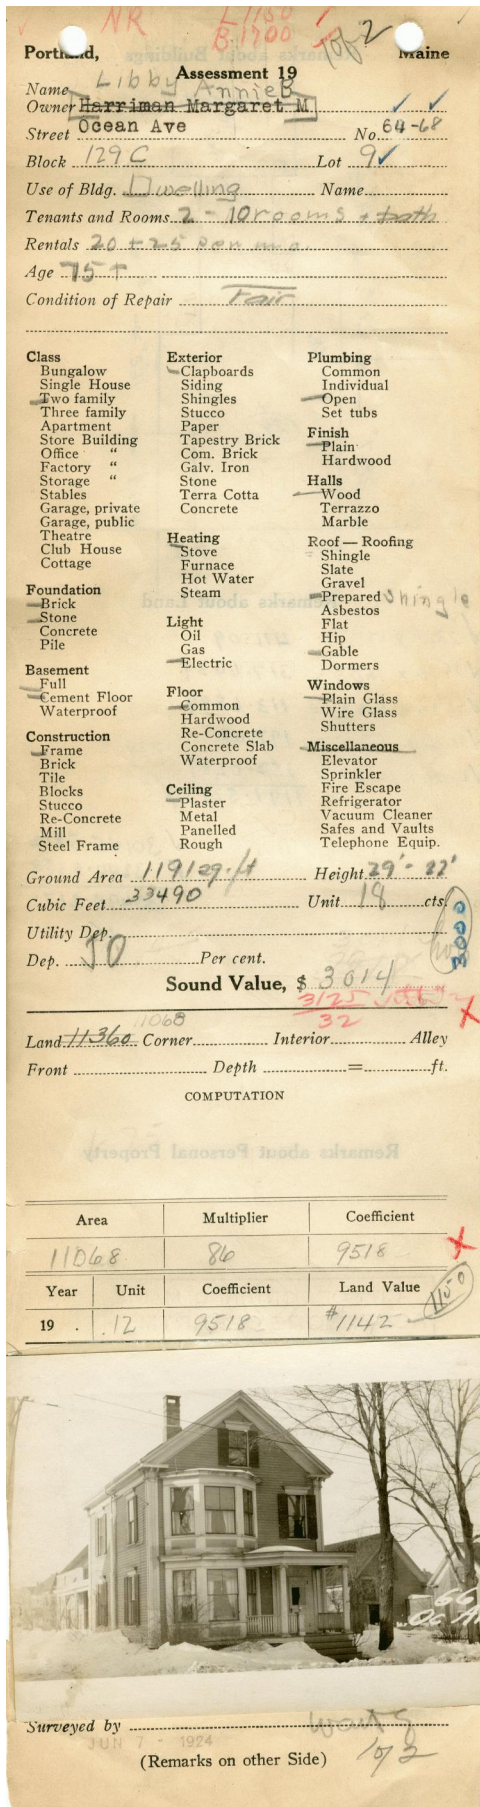 NR L 1150
B.1700 1 of 2
Portland, Maine
Assessment 19
Name Libby Annie B
Owner Harriman Margaret M
Street Ocean Ave No. 64-68
Block 129 C Lot 9
Use of Bldg. Dwelling Name
Tenants and Rooms 2 - 10 rooms + bath
Rentals 20 + 25 per mo.
Age 75+
Condition of Repair Fair
Class
Bungalow
Single House
Two family
Three family
Apartment
Store Building
Office "
Factory "
Storage "
Stables
Garage, private
Garage, public
Theatre
Club House
Cottage
Foundation
Brick
Stone
Concrete
Pile
Basement
Full
Cement Floor
Waterproof
Construction
Frame
Brick
Tile
Blocks
Stucco
Re-Concrete
Mill
Steel Frame
Exterior
Clapboards
Siding
Shingles
Stucco
Paper
Tapestry Brick
Com. Brick
Galv. Iron
Stone
Terra Cotta
Concrete
Heating
Stove
Furnace
Hot Water
Steam
Light
Oil
Gas
Electric
Floor
Common
Hardwood
Re-Concrete
Concrete Slab
Waterproof
Ceiling
Plaster
Metal
Panelled
Rough
Plumbing
Common
Individual
Open
Set tubs
Finish
Plain
Hardwood
Halls
Wood
Terrazzo
Marble
Roof — Roofing
Shingle
Slate
Gravel
Prepared Shingle
Asbestos
Flat
Hip
Gable
Dormers
Windows
Plain Glass
Wire Glass
Shutters
Miscellaneous
Elevator
Sprinkler
Fire Escape
Refrigerator
Vacuum Cleaner
Safes and Vaults
Telephone Equip.
Ground Area 1191 sq. ft Height 29' - 22'
Cubic Feet 33490 Unit 18 cts.
Utility Dep.
3000
Dep. 50 Per cent.
Sound Value, $ 3014
3125
32
1068
Land 11360 Corner Interior Alley
Front Depth = ft.
COMPUTATION
Area Multiplier Coefficient
11068 86 9518
Year Unit Coefficient Land Value 1150
19 . .12 9518 $1142
66
Oc. A
Surveyed by
JUN 7 - 1924
(Remarks on other Side) 1 of 2